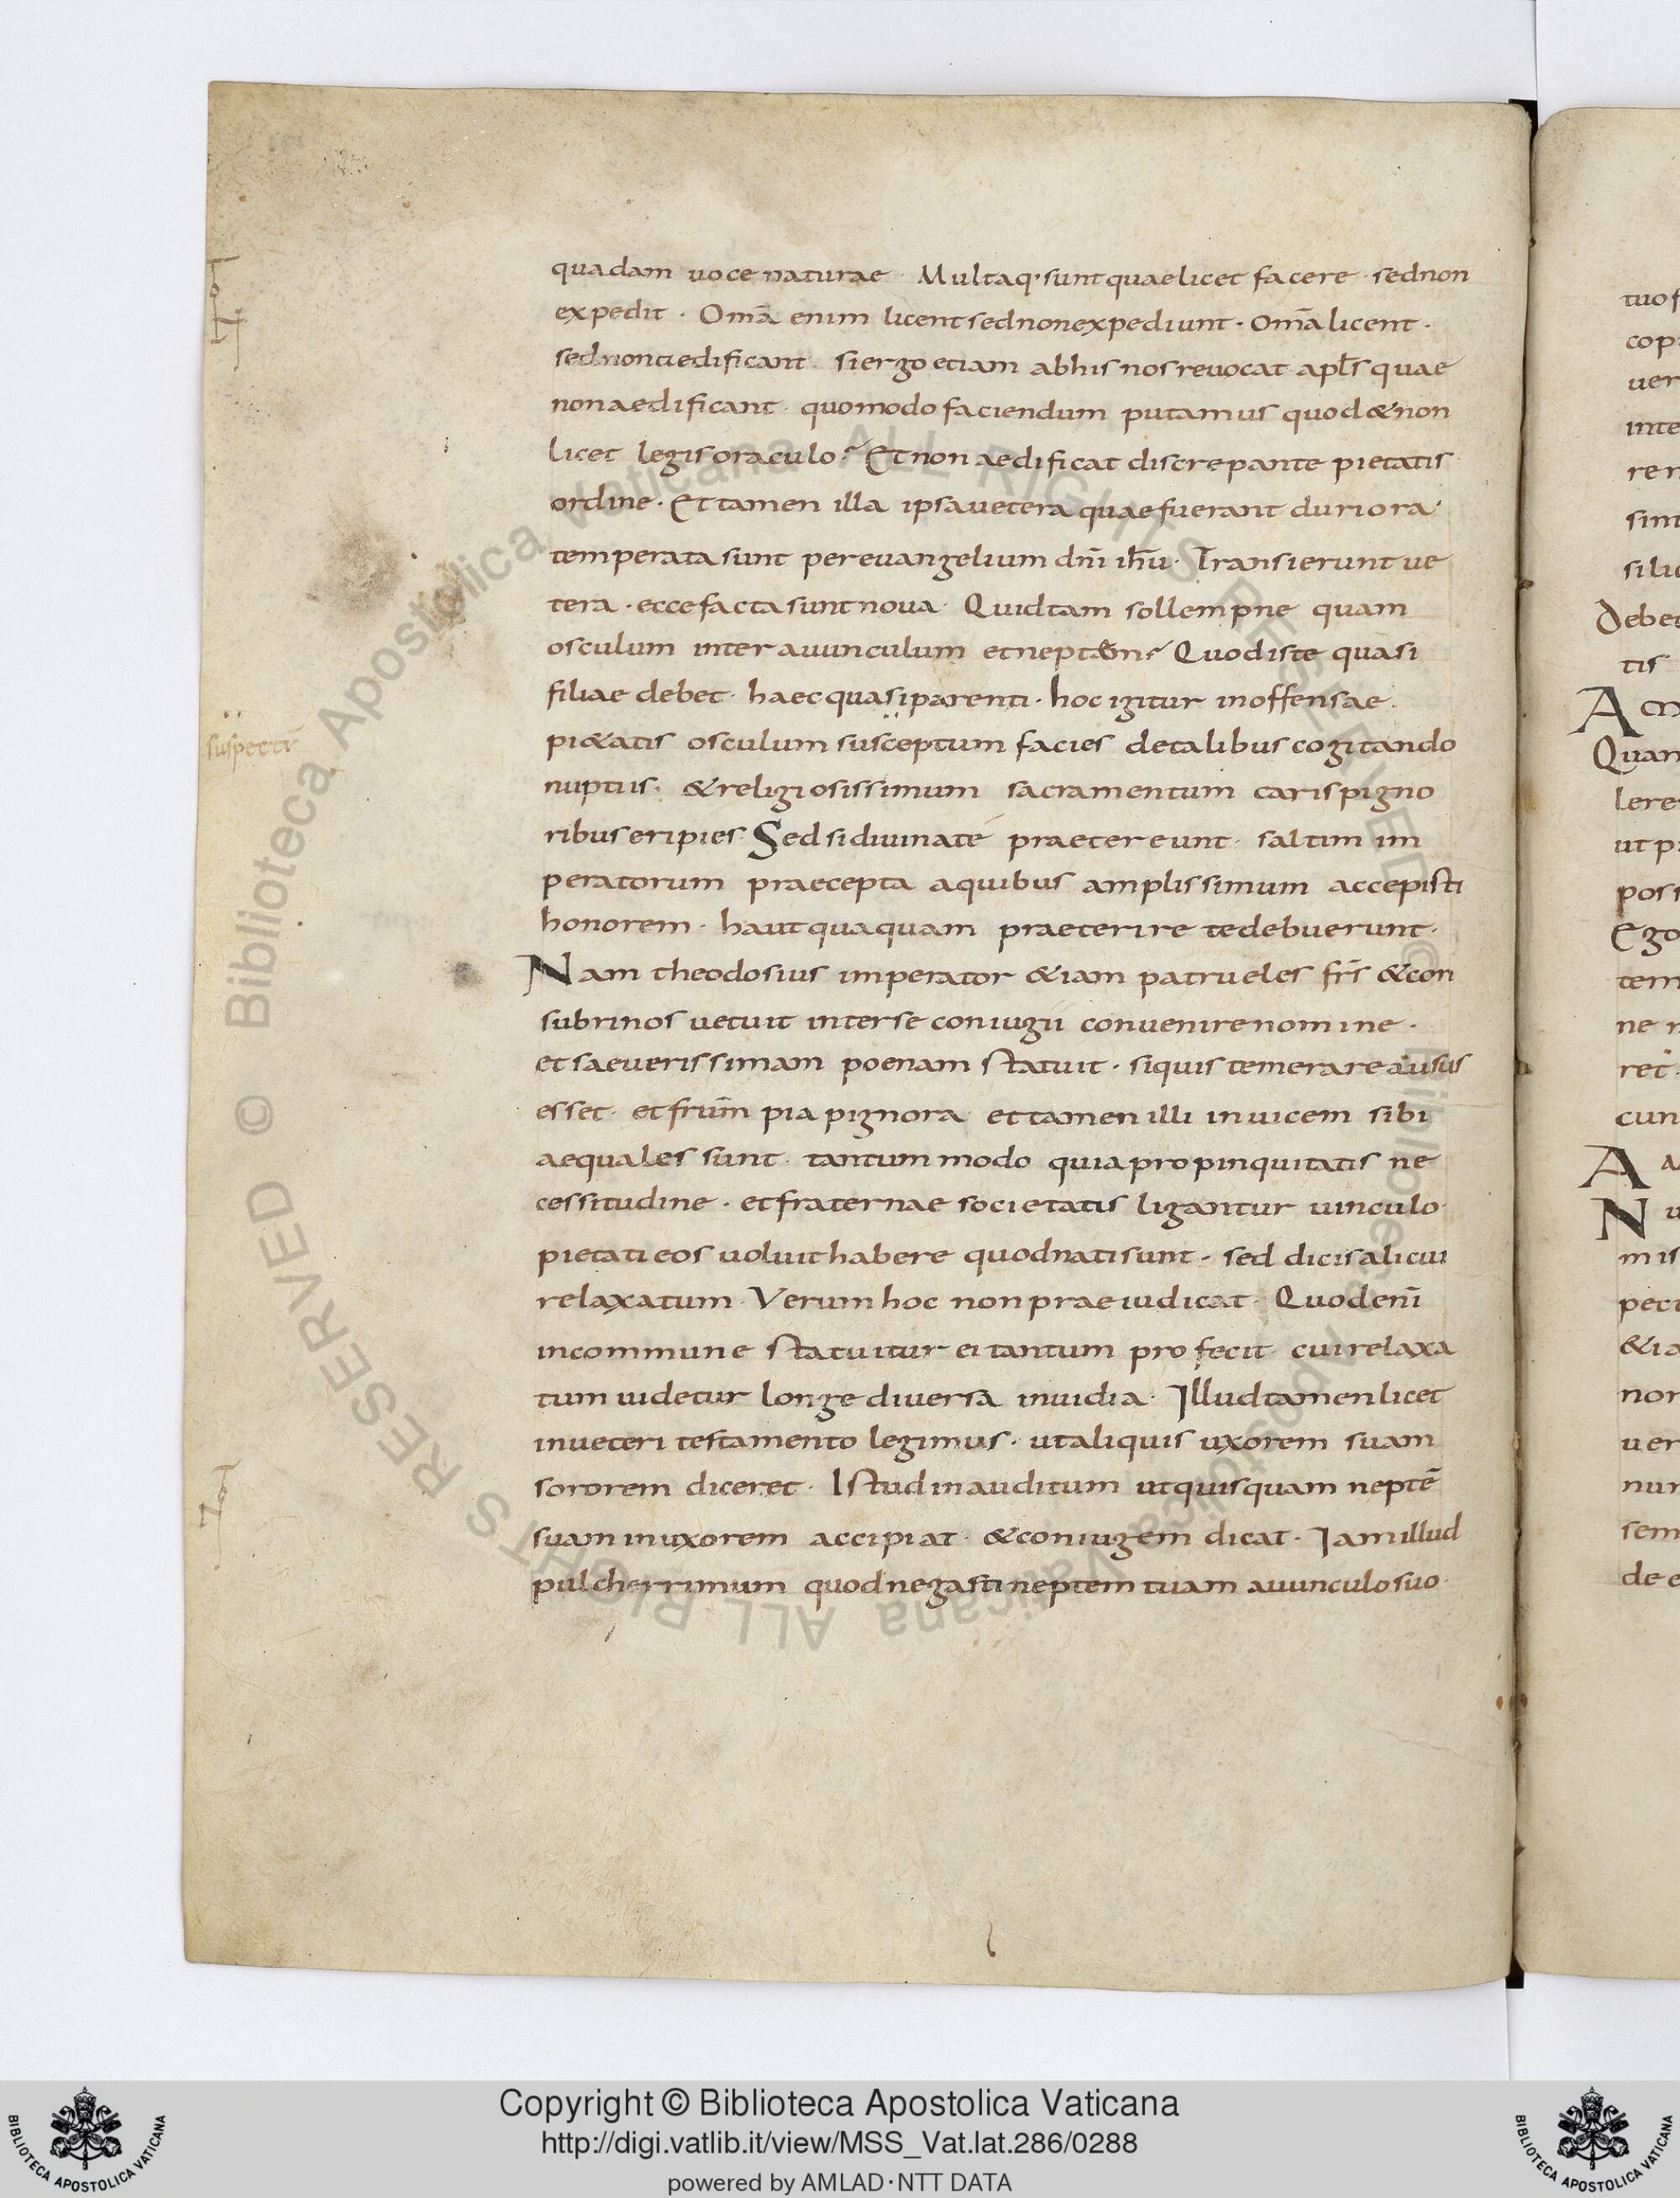 quadam uoce naturae · Multaq; sunt quae licet facere · sed non
expedit · Omā enim licent sed non expediunt · omā licent ·
sed non aedificant · si ergo etiam ab his nos reuocat apl̄s quae
non aedificant · quomodo faciendum putamus quod & non
licet legis oraculo? Et non aedificat discrepante pietatis
ordine · Et tamen illa ipsa uetera quae fuerant duriora ·
temperata sunt per euangelium dn̄i ih̄u · Transierunt ue
tera · ecce facta sunt noua · Quid tam sollempne quam
osculum inter auunculum et neptem? Quod iste quasi
filiae debet · haec quasi parenti · hoc igitur inoffensae
pi&atis osculum susceptum facies de talibus cogitando
suspectū
nuptiis · & religiosissimum sacramentum caris pigno
ribus eripies · Sed si diuina te praetereunt · saltim im
peratorum praecepta a quibus amplissimum accepisti
honorem · hautquaquam praeterire te debuerunt ·
Nam theodosius imperator &iam patrueles fr̄s & con
subrinos uetuit inter se coniugii conuenire nomine ·
et saeuerissimam poenam statuit · siquis temerare ausus
esset · et frūm pia pignora et tamen illi inuicem sibi
aequales sunt · tantum modo quia propinquitatis ne
cessitudine · et fraternae societatis ligantur uinculo ·
pietati eos uoluit habere quod nati sunt · sed dicis alicui
relaxatum · Verum hoc non praeiudicat · Quod enī
in commune statuitur ei tantum profecit cui relaxa
tum uidetur longe diuersā inuidia · Illud tamen licet
in ueteri testamento legimus · ut aliquis uxorem suam
sororem diceret · Istud inauditum ut quisquam neptē
suam in uxorem accipiat · & coniugem dicat · Iam illud
pulcherrimum quod negasti neptem tuam auunculo suo ·
tuo
cop
uer
inte
sint
Debet
tis
Quan
lere
ut p
pos
Ego
tem
ne
ret
cun
A
N
mis
pect
&ia
non
uer
nun
sem
de e
© Biblioteca Apostolica Vaticana ALL RIGHTS RESERVED © Biblioteca Apostolica Vaticana ALL RIGHTS RESERVED
Copyright © Biblioteca Apostolica Vaticana
http://digi.vatlib.it/view/MSS_Vat.lat.286/0288
powered by AMLAD·NTT DATA
BIBLIOTECA APOSTOLICA VATICANA
BIBLIOTECA APOSTOLICA VATICANA